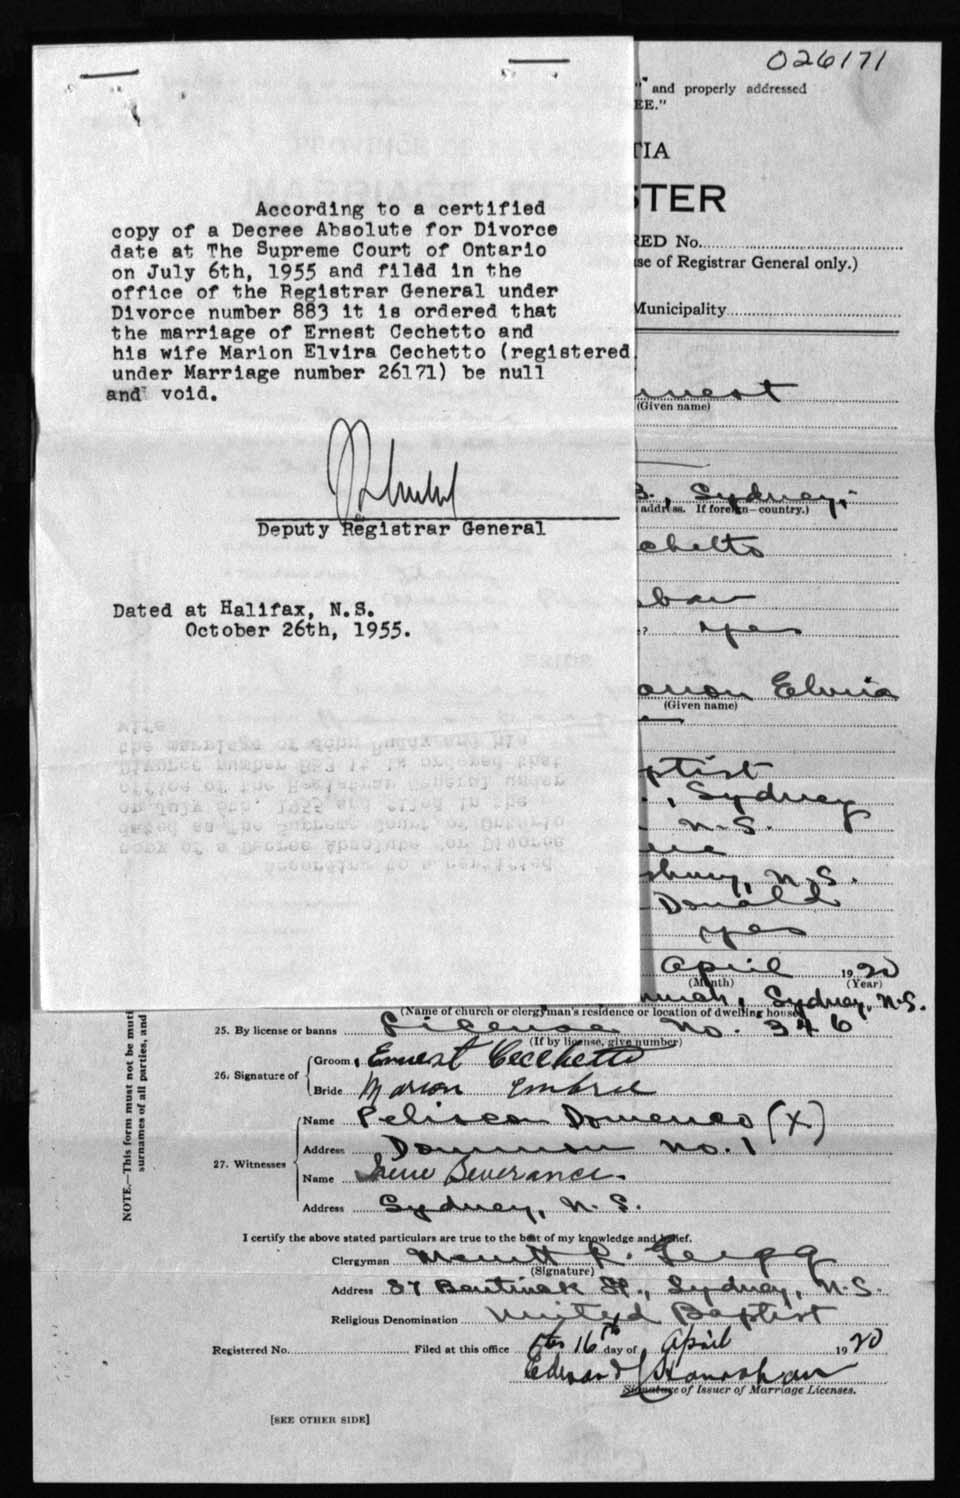 026171
" and properly addressed
EE."
TIA
STER
RED No.
se of Registrar General only.)
Municipality
According to a certified
copy of a Decree Absolute for Divorce
date at The Supreme Court of Ontario
on July 6th, 1955 and filed in the
office of the Registrar General under
Divorce number 883 it is ordered that
the marriage of Ernest Cechetto and
his wife Marion Elvira Cechetto (registered
under Marriage number 26171) be null
and void.
Deputy Registrar General
Dated at Halifax, N.S.
October 26th, 1955.
nest
(Given name)
B., Sydney,
address. If foreign—country.)
chetto
? yes
arion Elvira
(Given name)
ptist
., Sydney
N.S.
sbury, N.S.
Donald
yes
April 1920
(Month) (Year)
Sydney, N.S.
(Name of church or clergyman's residence or location of dwelling house)
25. By license or banns License No. 346
(If by license, give number)
26. Signature of
Groom Ernest Cecchetto
Bride Marion Embree
27. Witnesses
Name Domenco (X)
Address Dominion No. 1
Name Irene Beverance.
Address Sydney, N.S.
NOTE.—This form must not be muti
surnames of all parties, and
I certify the above stated particulars are true to the best of my knowledge and belief.
Clergyman Merritt R. Gregg
(Signature)
Address 37 Bentinck St., Sydney, N.S.
Religious Denomination United Baptist
Registered No. Filed at this office 16th day of April 1920
Edward Hanrahan
Signature of Issuer of Marriage Licenses.
[SEE OTHER SIDE]